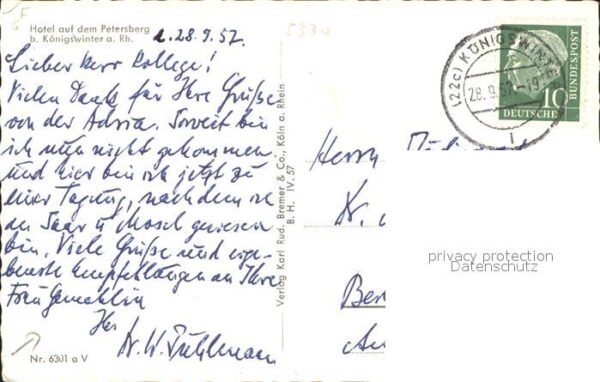 Hotel auf dem Petersberg
b. Königswinter a. Rh.
28.9.57.
5330
Lieber Herr College!
Vielen Dank für Ihre Grüße
von der Adria. Soweit bin
ich nun nicht gekommen
und hier bin ich jetzt zu
einer Tagung, nachdem ich
an Saar u Mosel gewesen
bin. Viele Grüße und erge-
benste Empfehlungen an Ihre
Frau Gemahlin
Ihr
Dr. W.
Nr. 6301 a V
Verlag Karl Rud. Bremer & Co., Köln a. Rhein
B. H. IV. 57
(22c) KÖNIGSWINTE
28.9.57.-19
1
10
DEUTSCHE
BUNDESPOST
Herrn
Dr.
Ber
privacy protection
Datenschutz